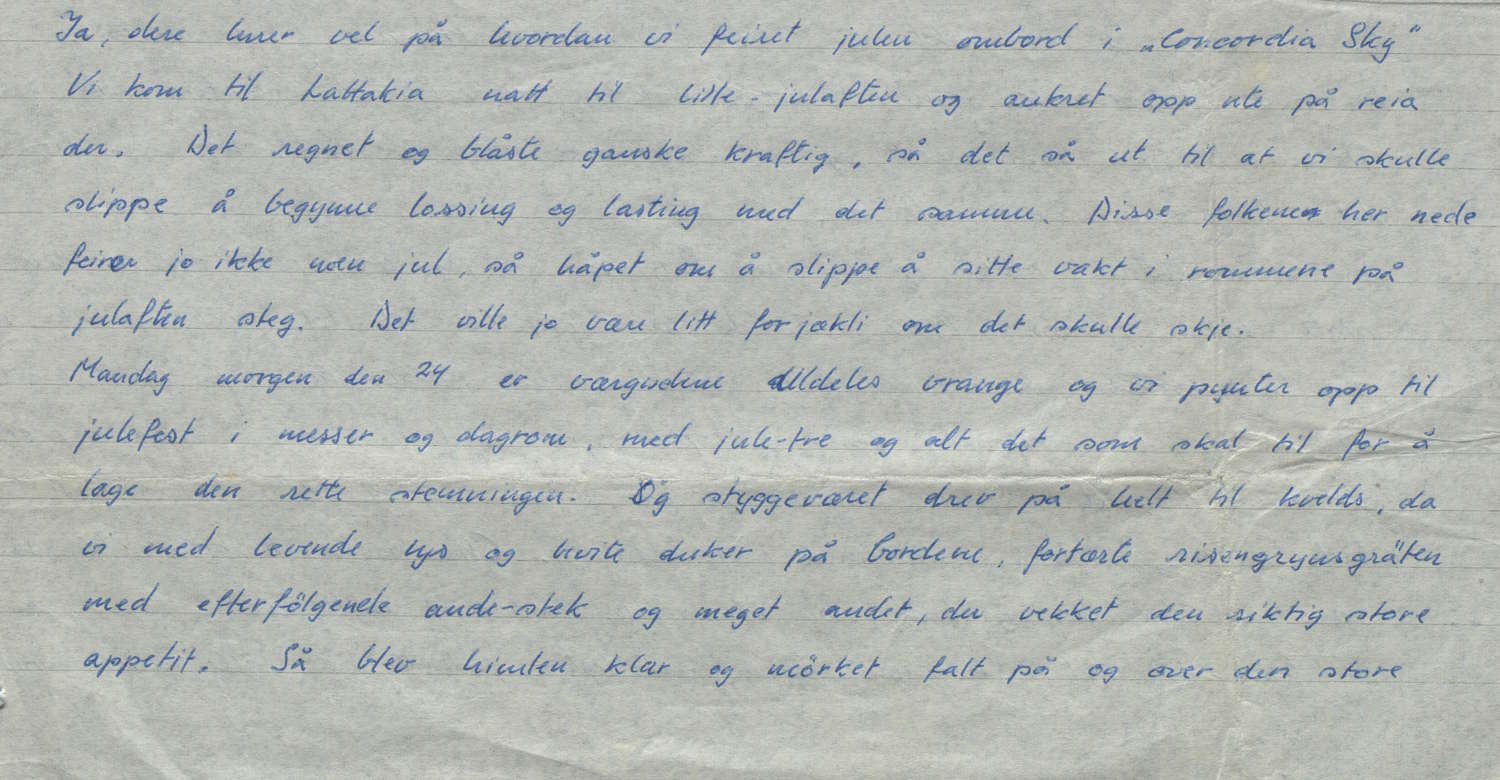 Ja, dere lurer vel på hvordan vi feiret julen ombord i „Concordia Sky“
Vi kom til Lattakia natt til lille-julaften og ankret opp ute på reia
der. Det regnet og blåste ganske kraftig, så det så ut til at vi skulle
slippe å begynne lossing og lasting med det samme. Disse folkene her nede
feirer jo ikke noen jul, så håpet om å slippe å sitte vakt i rommene på
julaften steg. Det ville jo være litt for jækli om det skulle skje.
Mandag morgen den 24 er værgudene aldeles vrange og vi pynter opp til
julefest i messer og dagrom, med jule-tre og alt det som skal til for å
lage den rette stemningen. Og styggeværet drev på helt til kvelds, da
vi med levende lys og hvite duker på bordene, fortærte risengrynsgröten
med efterfölgende ande-stek og meget andet, der vekket den riktig store
appetit. Så blev himlen klar og mörket falt på og over den store